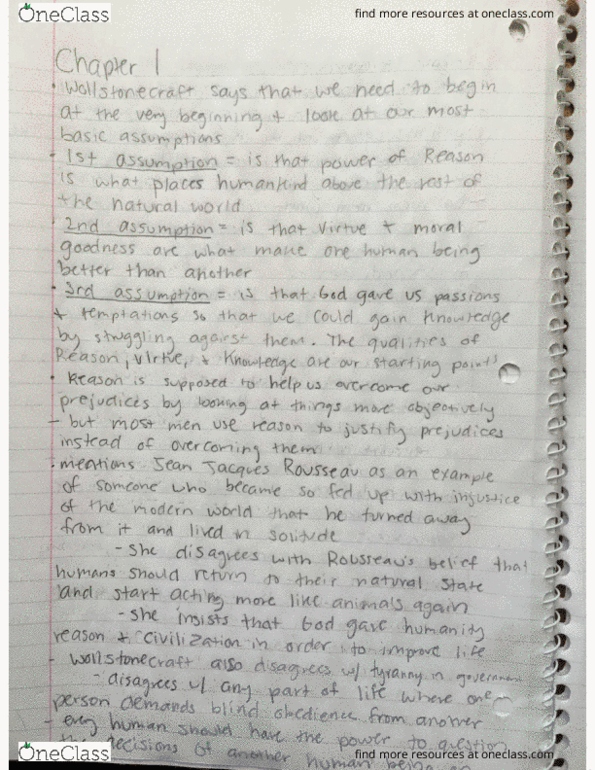 OneClass
find more resources at oneclass.com
Chapter 1
• Wollstonecraft says that we need to begin
at the very beginning + look at our most
basic assumptions
- 1st assumption = is that power of Reason
is what places humankind above the rest of
the natural world
2nd assumption = is that virtue + moral
goodness are what make one human being
better than another
• 3rd assumption = is that God gave us passions
+ temptations so that we could gain knowledge
by struggling against them. The qualities of
Reason, virtue, + knowledge are our starting points
• Reason is supposed to help us overcome our
prejudices by looking at things more objectively
- but most men use reason to justify prejudices
instead of overcoming them
• mentions Jean Jacques Rousseau as an example
of someone who became so fed up with injustice
of the modern world that he turned away
from it and lived in solitude
- she disagrees with Rousseau's belief that
humans should return to their natural state
and start acting more like animals again
- she insists that God gave humanity
reason + civilization in order to improve life
- Wollstonecraft also disagrees w/ tyranny in government
- disagrees w/ any part of life where one
person demands blind obedience from another
- every human should have the power to question
the decisions of another human being
OneClass
find more resources at oneclass.com